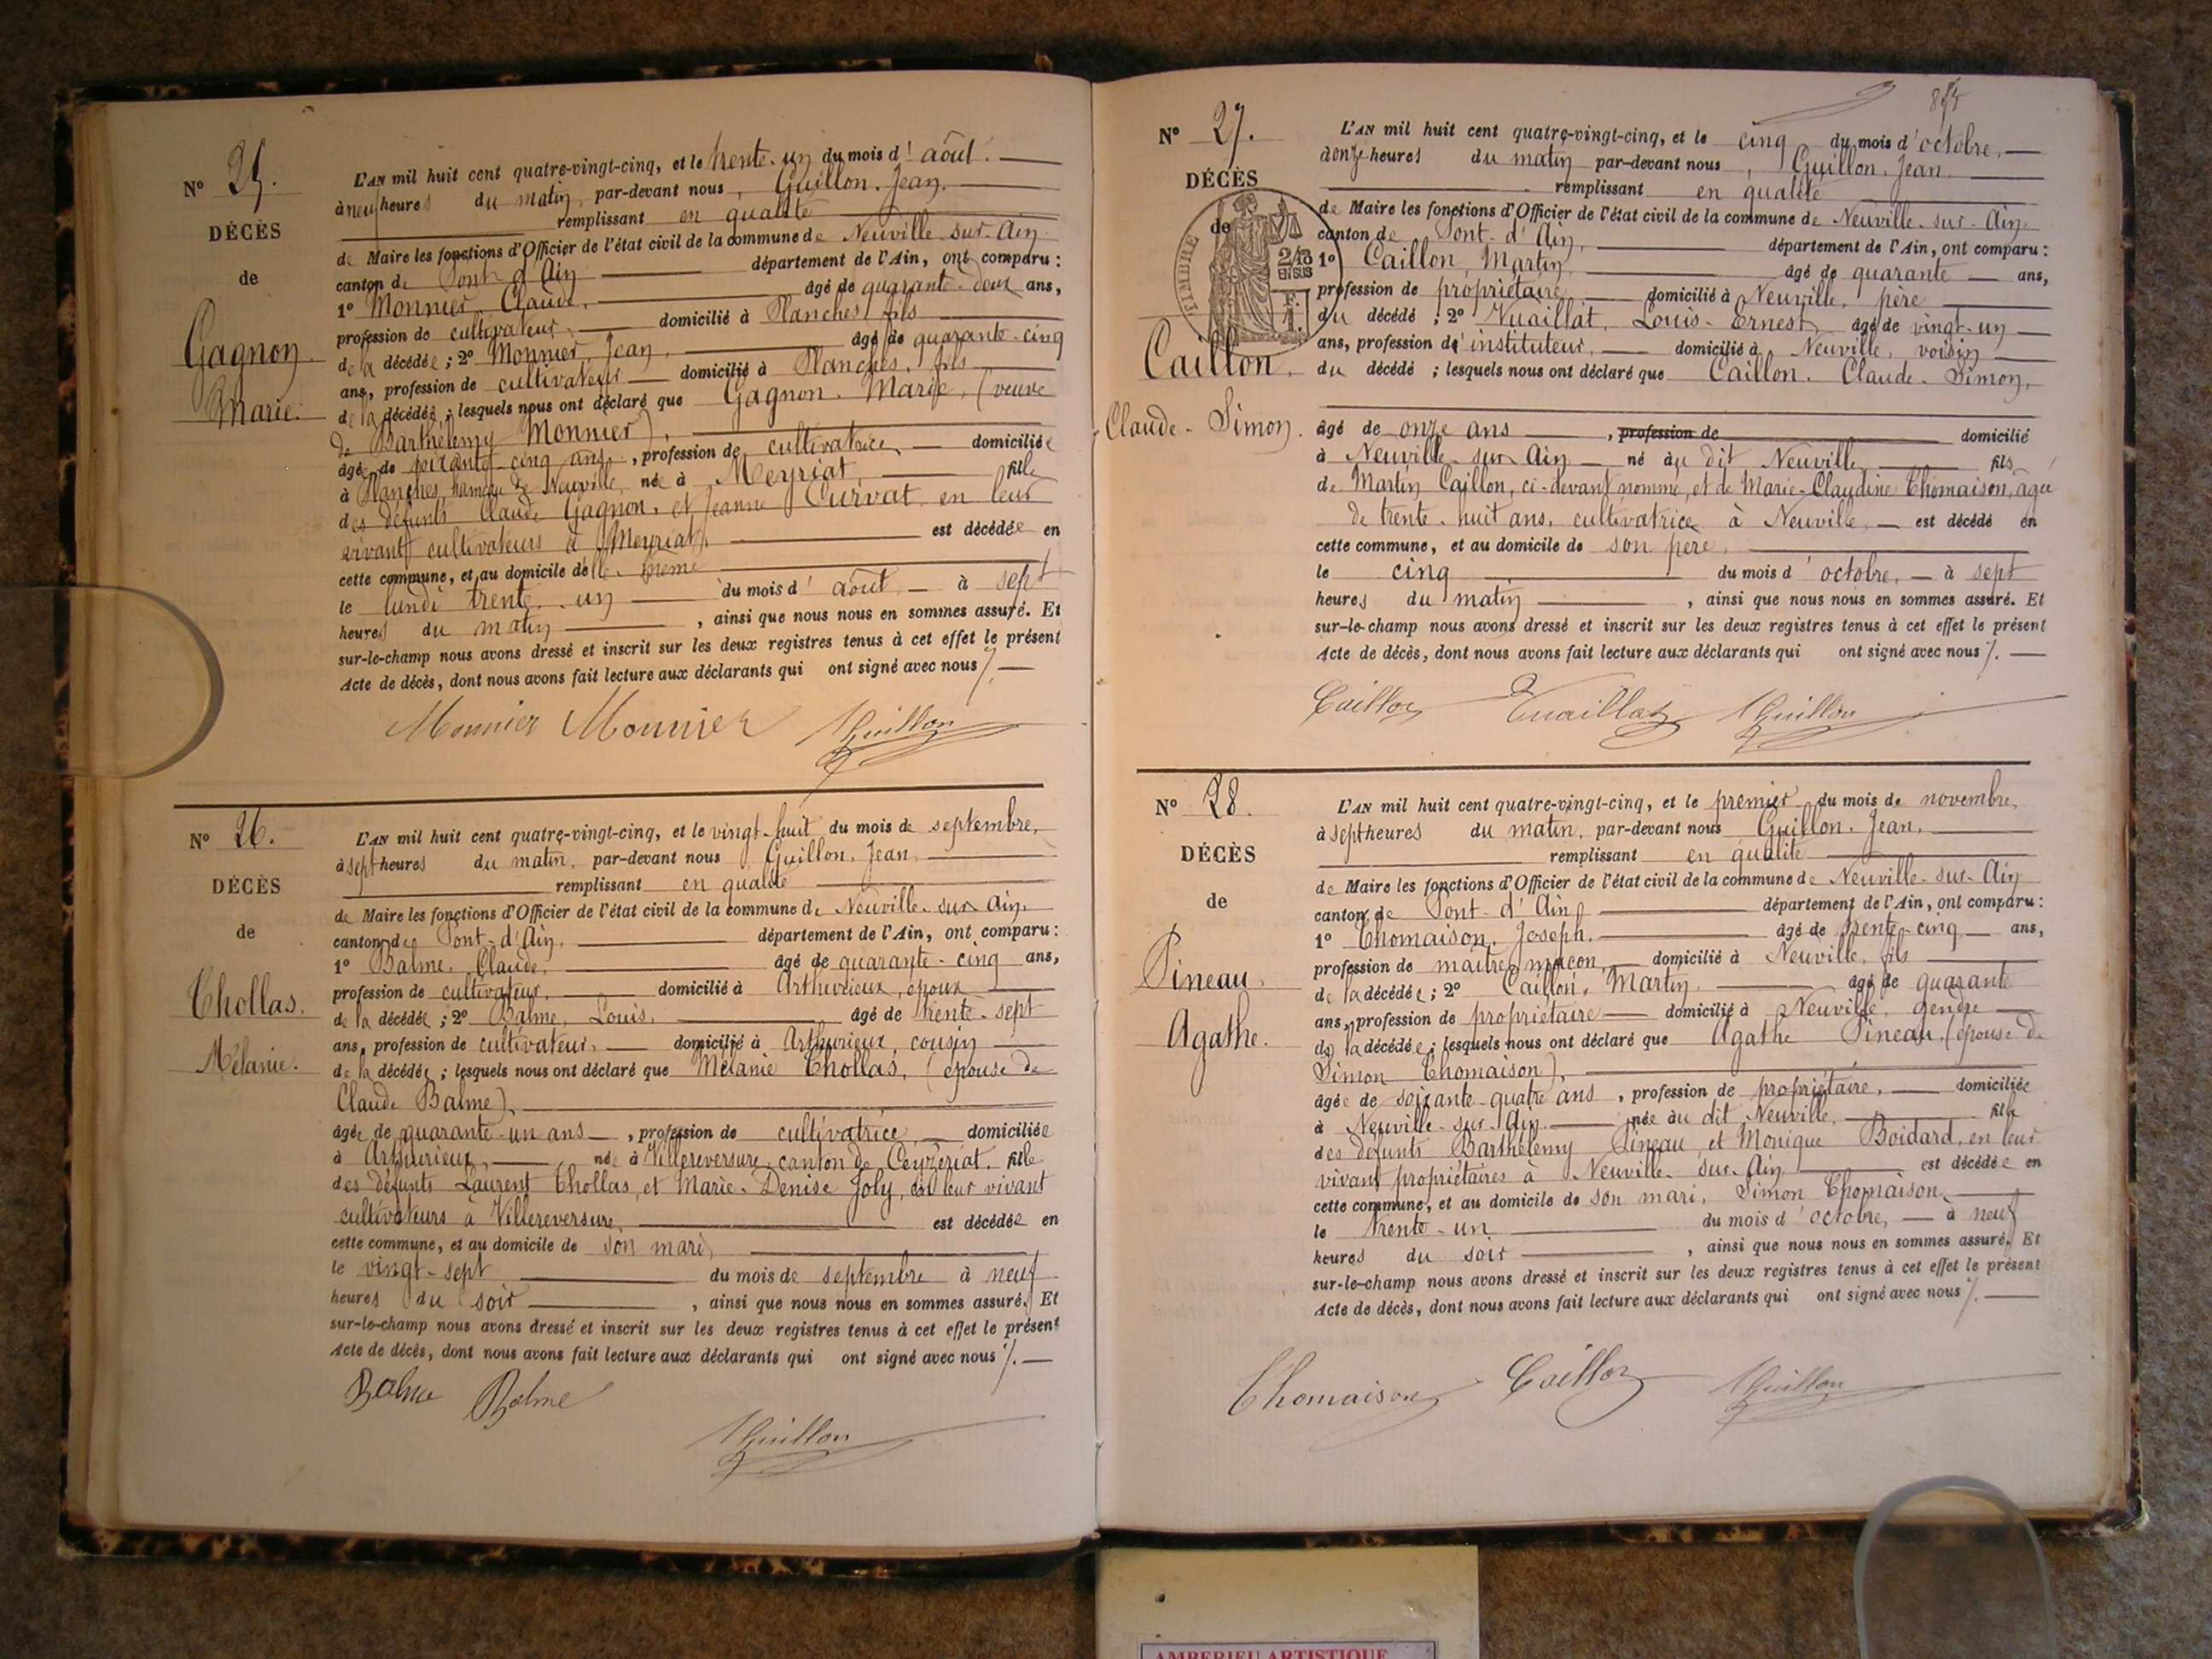 N° 25.
DÉCÈS
de
Gagnon
Marie.
L'AN mil huit cent quatre-vingt-cinq, et le trente-un du mois d'août.
à neuf heures du matin, par-devant nous, Guillon, Jean.
remplissant en qualité
de Maire les fonctions d'Officier de l'état civil de la commune de Neuville-sur-Ain
canton de Pont-d'Ain département de l'Ain, ont comparu :
1° Monnier, Claude, âgé de quarante-deux ans,
profession de cultivateur, domicilié à Planches, fils
de la décédée ; 2° Monnier, Jean, âgé de quarante-cinq
ans, profession de cultivateur domicilié à Planches, fils
de la décédée ; lesquels nous ont déclaré que Gagnon. Marie, (veuve
de Barthélemy Monnier),
âgée de soixante-cinq ans, profession de cultivatrice domiciliée
à Planches, hameau de Neuville, née à Meyriat, fille
des défunts Claude Gagnon, et Jeanne Curvat, en leur
vivant cultivateurs à Meyriat, est décédée en
cette commune, et au domicile d'elle-même
le lundi trente-un du mois d'août, à sept
heures du matin, ainsi que nous nous en sommes assuré. Et
sur-le-champ nous avons dressé et inscrit sur les deux registres tenus à cet effet le présent
Acte de décès, dont nous avons fait lecture aux déclarants qui ont signé avec nous ./.
Monnier Monnier JGuillon
N° 26.
DÉCÈS
de
Chollas.
Mélanie.
L'AN mil huit cent quatre-vingt-cinq, et le vingt-huit du mois de septembre,
à sept heures du matin, par-devant nous Guillon, Jean,
remplissant en qualité
de Maire les fonctions d'Officier de l'état civil de la commune de Neuville-sur-Ain,
canton de Pont-d'Ain, département de l'Ain, ont comparu :
1° Balme, Claude, âgé de quarante-cinq ans,
profession de cultivateur, domicilié à Arthurieux, époux
de la décédée ; 2° Balme, Louis, âgé de trente-sept
ans, profession de cultivateur, domicilié à Arthurieux, cousin
de la décédée ; lesquels nous ont déclaré que Mélanie Chollas, (épouse de
Claude Balme),
âgée de quarante-un ans, profession de cultivatrice, domiciliée
à Arthurieux, née à Villereversure, canton de Ceyzériat, fille
des défunts Laurent Chollas, et Marie-Denise Joly, en leur vivant
cultivateurs à Villereversure, est décédée en
cette commune, et au domicile de son mari,
le vingt-sept du mois de septembre à neuf
heures du soir, ainsi que nous nous en sommes assuré. Et
sur-le-champ nous avons dressé et inscrit sur les deux registres tenus à cet effet le présent
Acte de décès, dont nous avons fait lecture aux déclarants qui ont signé avec nous ./.
Balme Balme
JGuillon
N° 27.
DÉCÈS
de
TIMBRE
2/10
EN SUS
Caillon.
Claude-Simon.
L'AN mil huit cent quatre-vingt-cinq, et le cinq du mois d'octobre,
à onze heures du matin par-devant nous, Guillon, Jean.
remplissant en qualité
de Maire les fonctions d'Officier de l'état civil de la commune de Neuville-sur-Ain
canton de Pont-d'Ain, département de l'Ain, ont comparu :
1° Caillon, Martin, âgé de quarante ans,
profession de propriétaire, domicilié à Neuville, père
du décédé ; 2° Vuaillat, Louis-Ernest, âgé de vingt-un
ans, profession d'instituteur, domicilié à Neuville, voisin
du décédé ; lesquels nous ont déclaré que Caillon. Claude-Simon,
âgé de onze ans, profession de domicilié
à Neuville-sur-Ain né au dit Neuville, fils
de Martin Caillon, ci-devant nommé, et de Marie-Claudine Thomaison, âgée
de trente-huit ans, cultivatrice à Neuville, est décédé en
cette commune, et au domicile de son père,
le cinq du mois d'octobre, à sept
heures du matin, ainsi que nous nous en sommes assuré. Et
sur-le-champ nous avons dressé et inscrit sur les deux registres tenus à cet effet le présent
Acte de décès, dont nous avons fait lecture aux déclarants qui ont signé avec nous ./.
Caillon Vuaillat JGuillon
N° 28.
DÉCÈS
de
Pineau.
Agathe.
L'AN mil huit cent quatre-vingt-cinq, et le premier du mois de novembre,
à sept heures du matin, par-devant nous Guillon, Jean,
remplissant en qualité
de Maire les fonctions d'Officier de l'état civil de la commune de Neuville-sur-Ain
canton de Pont-d'Ain département de l'Ain, ont comparu :
1° Thomaison, Joseph, âgé de trente-cinq ans,
profession de maître-maçon, domicilié à Neuville, fils
de la décédée ; 2° Caillon, Martin, âgé de quarante
ans, profession de propriétaire domicilié à Neuville, gendre
de la décédée ; lesquels nous ont déclaré que Agathe Pineau, (épouse de
Simon Thomaison),
âgée de soixante-quatre ans, profession de propriétaire, domiciliée
à Neuville-sur-Ain née au dit Neuville, fille
des défunts Barthélemy Pineau, et Monique Boidard, en leur
vivant propriétaires à Neuville-sur-Ain est décédée en
cette commune, et au domicile de son mari, Simon Thomaison,
le trente-un du mois d'octobre, à neuf
heures du soir, ainsi que nous nous en sommes assuré. Et
sur-le-champ nous avons dressé et inscrit sur les deux registres tenus à cet effet le présent
Acte de décès, dont nous avons fait lecture aux déclarants qui ont signé avec nous ./.
Thomaison Caillon JGuillon
AMBERIEU ARTISTIQUE